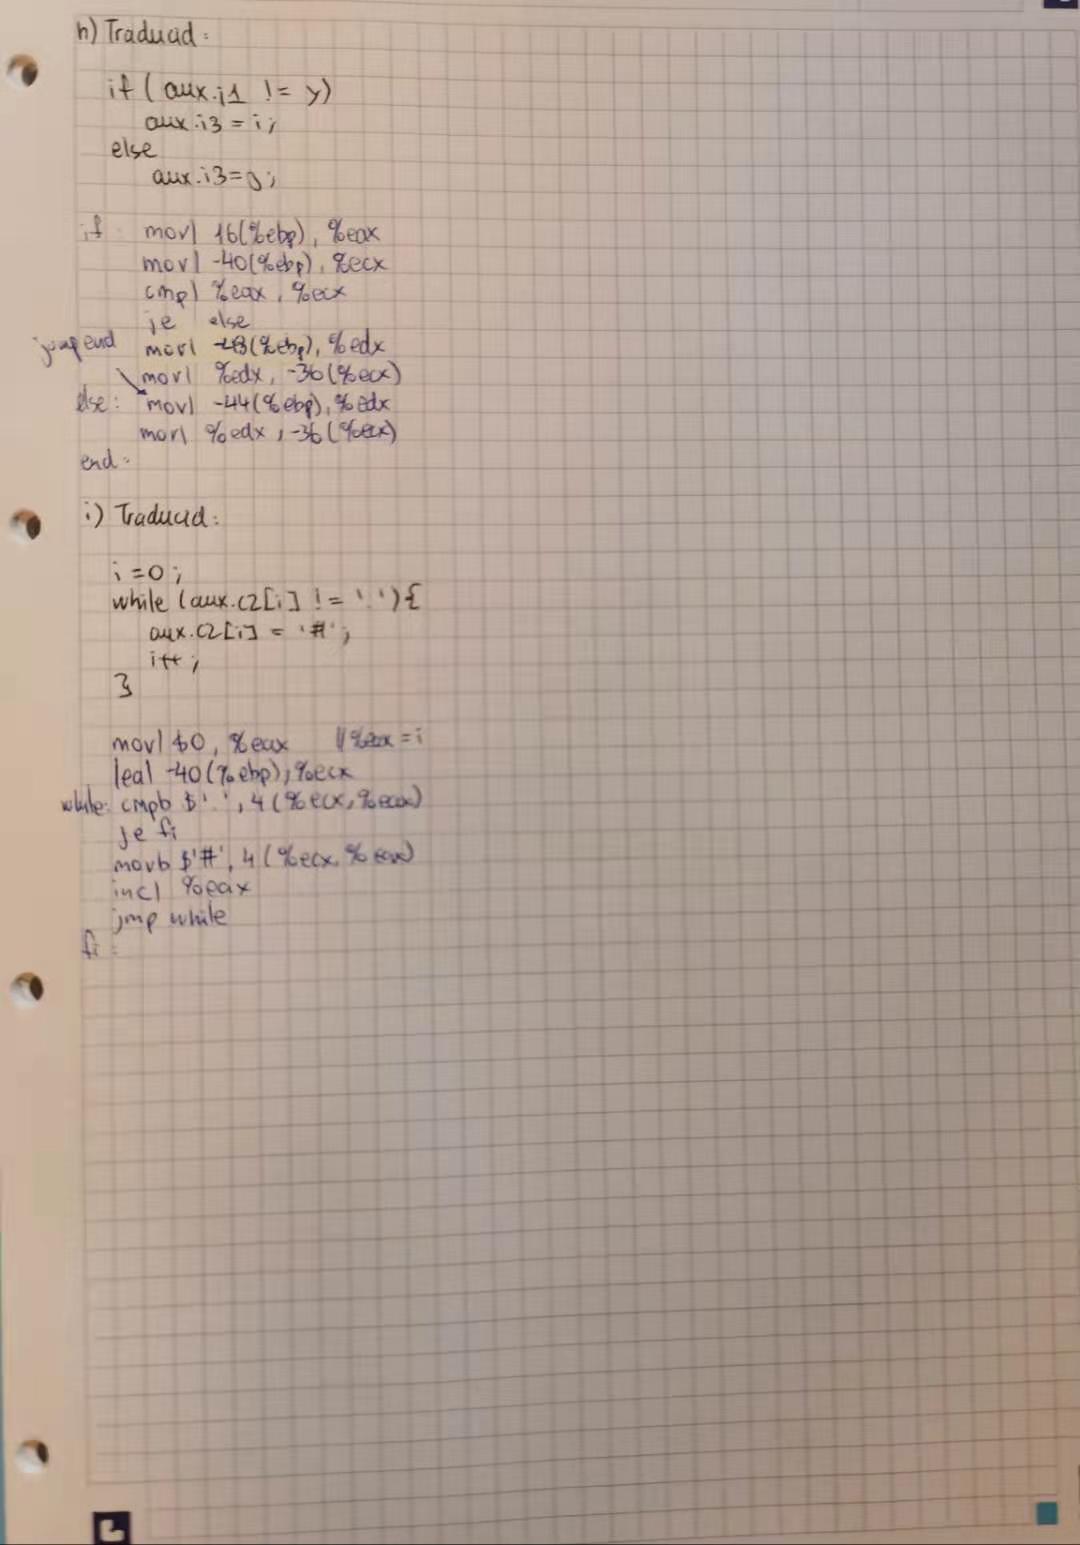 h) Traducid:
if ( aux.i1 != y)
aux.i3 = i;
else
aux.i3=j;
if: movl 16(%ebp), %eax
movl -40(%ebp), %ecx
cmpl %eax, %ecx
je else
movl -48(%ebp), %edx
jump end
movl %edx, -36(%ecx)
else: movl -44(%ebp), %edx
movl %edx, -36(%ecx)
end:
i) Traducid:
i=0;
while (aux.c2[i] != '.'){
aux.c2[i] = '#';
i++;
}
movl $0, %eax //%eax = i
leal -40(%ebp), %ecx
while: cmpb $'.', 4(%ecx,%eax)
je fi
movb $'#', 4(%ecx,%eax)
incl %eax
jmp while
fi: